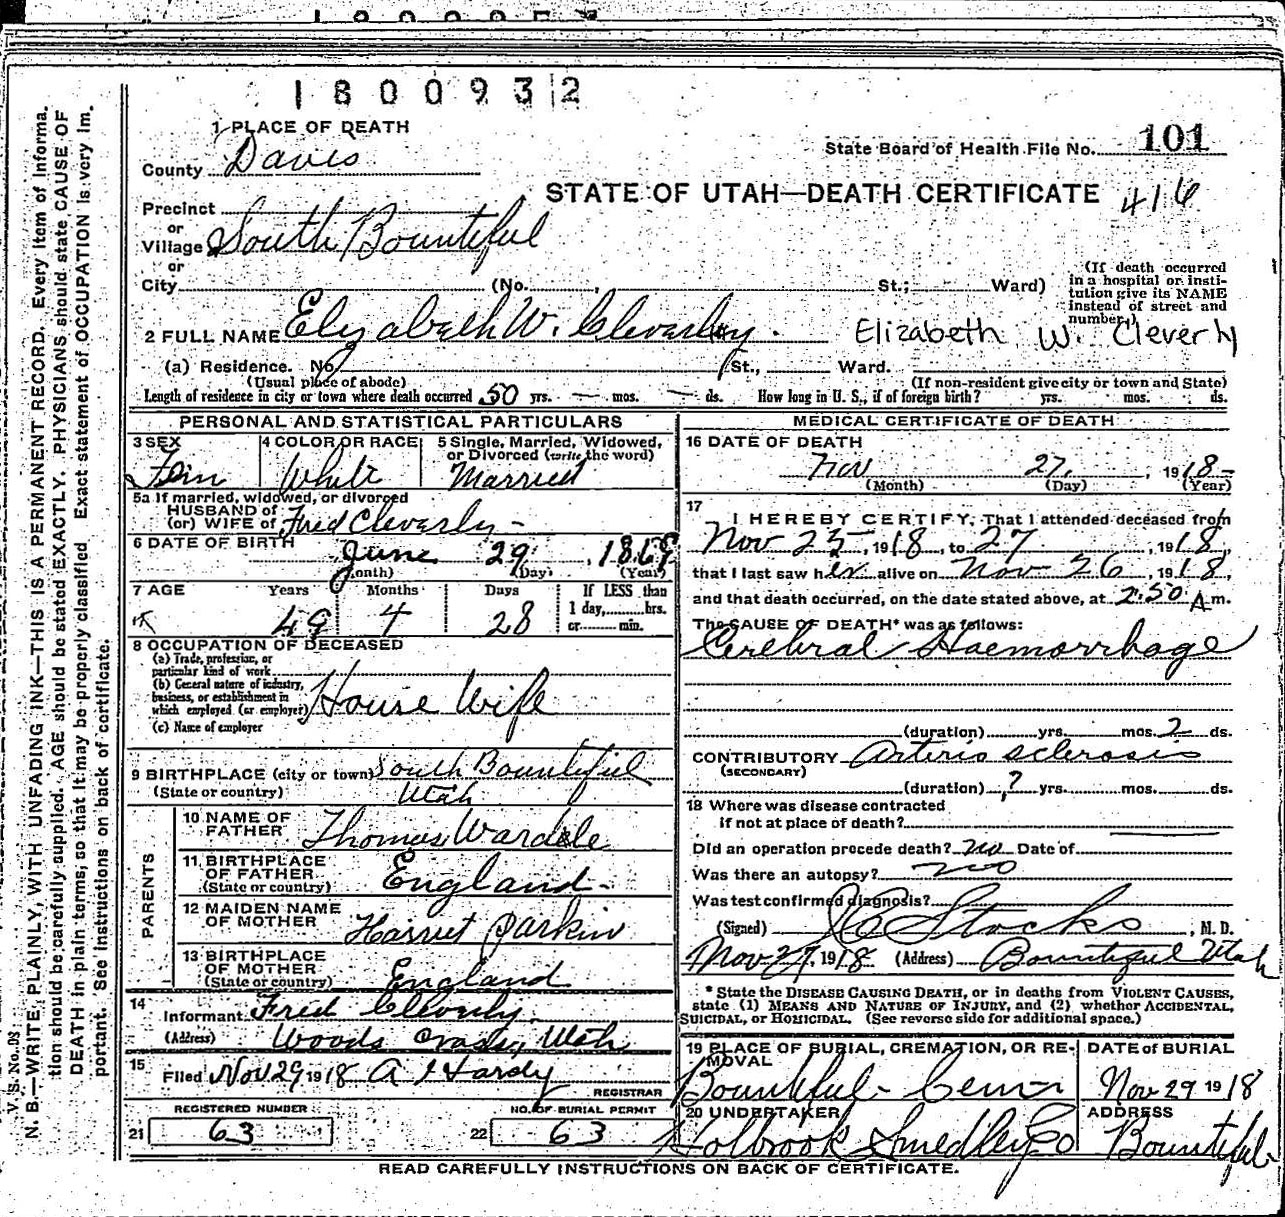 1800932
1 PLACE OF DEATH
County Davis
State Board of Health File No. 101
STATE OF UTAH—DEATH CERTIFICATE 416
Precinct
or
Village South Bountiful
or
City (No. , St.; Ward)
(If death occurred
in a hospital or insti-
tution give its NAME
instead of street and
number.)
2 FULL NAME Elizabeth W. Cleverly. Elizabeth W. Cleverly
(a) Residence. No. St., Ward.
(Usual place of abode) (If non-resident give city or town and State)
Length of residence in city or town where death occurred 50 yrs. — mos. — ds. How long in U. S., if of foreign birth? yrs. mos. ds.
PERSONAL AND STATISTICAL PARTICULARS
3 SEX 4 COLOR OR RACE 5 Single, Married, Widowed,
or Divorced (write the word)
Fem White Married
5a If married, widowed, or divorced
HUSBAND of
(or) WIFE of Fred Cleverly -
6 DATE OF BIRTH
June 29, 1869
(Month) (Day) (Year)
7 AGE Years Months Days If LESS than
1 day, hrs.
or min.
49 4 28
8 OCCUPATION OF DECEASED
(a) Trade, profession, or
particular kind of work
(b) General nature of industry,
business, or establishment in
which employed (or employer) House Wife
(c) Name of employer
9 BIRTHPLACE (city or town) South Bountiful
(State or country) Utah
PARENTS
10 NAME OF
FATHER Thomas Wardele
11 BIRTHPLACE
OF FATHER
(State or country) England -
12 MAIDEN NAME
OF MOTHER Harriet Parkin
13 BIRTHPLACE
OF MOTHER
(State or country) England
14
Informant Fred Cleverly.
(Address) Woods Cross, Utah
15
Filed Nov 29 1918 A J Hardy
REGISTRAR
REGISTERED NUMBER NO. OF BURIAL PERMIT
21 63 22 63
MEDICAL CERTIFICATE OF DEATH
16 DATE OF DEATH
Nov 27, 1918-
(Month) (Day) (Year)
17
I HEREBY CERTIFY, That I attended deceased from
Nov 25, 1918, to 27, 1918,
that I last saw her alive on Nov 26, 1918,
and that death occurred, on the date stated above, at 2:50 A m.
The CAUSE OF DEATH* was as follows:
Cerebral Haemorrhage
(duration) yrs. mos. 2 ds.
CONTRIBUTORY Arterio sclerosis
(SECONDARY)
(duration) ? yrs. mos. ds.
18 Where was disease contracted
if not at place of death?
Did an operation precede death? no Date of
Was there an autopsy? no
Was test confirmed diagnosis?
(Signed) Stocks, M. D.
Nov 27, 1918 (Address) Bountiful Utah
* State the DISEASE CAUSING DEATH, or in deaths from VIOLENT CAUSES,
state (1) MEANS AND NATURE OF INJURY, and (2) whether ACCIDENTAL,
SUICIDAL, or HOMICIDAL. (See reverse side for additional space.)
19 PLACE OF BURIAL, CREMATION, OR RE-
MOVAL
DATE OF BURIAL
Bountiful - Nov 29 1918
20 UNDERTAKER ADDRESS
Holbrook Smedley Co Bountiful
READ CAREFULLY INSTRUCTIONS ON BACK OF CERTIFICATE.
V. S. No. D3
N. B.—WRITE PLAINLY, WITH UNFADING INK—THIS IS A PERMANENT RECORD. Every item of informa-
tion should be carefully supplied. AGE should be stated EXACTLY. PHYSICIANS should state CAUSE OF
DEATH in plain terms, so that it may be properly classified. Exact statement of OCCUPATION is very im-
portant. See instructions on back of certificate.